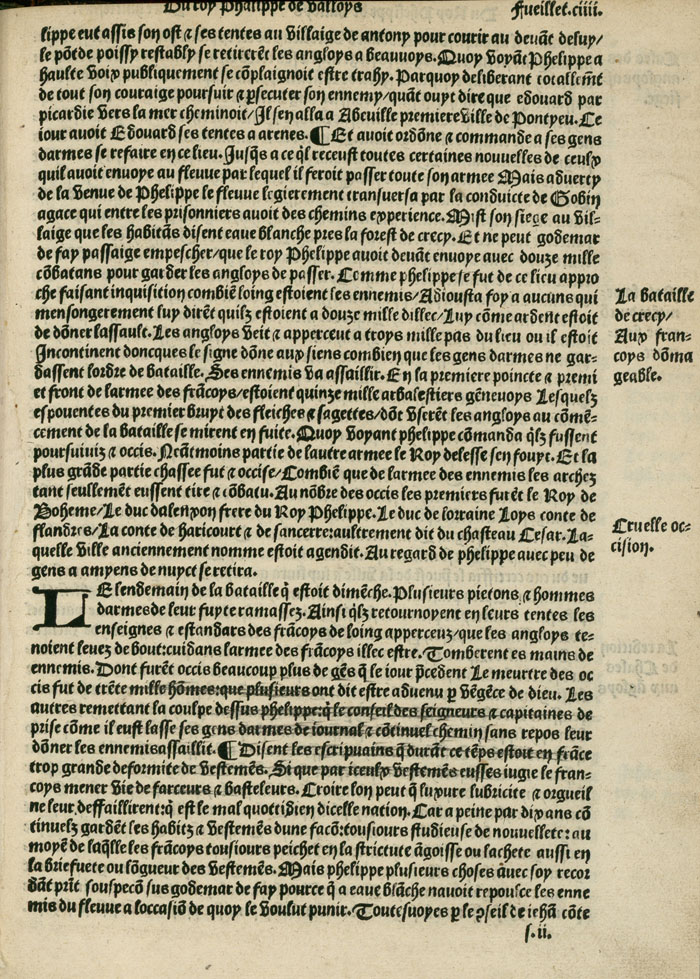 Du roy Phalippe de valloys
Fueillet.ciiii.
lippe eut assis son ost ⁊ ses tentes au villaige de antony pour courir au deuāt deluy/
le pōt de poissy restably se retirerēt les angloys a beauuoys. Quoy voyāt Phelippe a
haulte voix publiquement se cōplaignoit estre trahy. Parquoy deliberant totallemt̄
de tout son couraige poursuir ⁊ ꝑsecuter son ennemy/quāt ouyt dire que edouard par
picardie vers la mer cheminoit/Il sen alla a Abeuille premiere ville de Pontyeu. Ce
iour auoit Edouard ses tentes a arenes. ¶ Et auoit ordōne ⁊ commande a ses gens
darmes se refaire en ce lieu. Jusq̄s a ce q̄l receust toutes certaines nouuelles de ceulx
quil auoit enuoye au fleuue par lequel il feroit passer toute son armee Mais aduerty
de la venue de Phelippe le fleuue legierement transuersa par la conduicte de Gobin
agace qui entre les prisonniers auoit des chemins experience. Mist son siege au vil-
laige que les habitās disent eaue blanche pres la forest de crecy. Et ne peut godemar
de fay passaige empescher/que le roy Phelippe auoit deuāt enuoye auec douze mille
cōbatans pour garder les angloys de passer. Comme phelippe se fut de ce lieu appro
che faisant inquisition combiē loing estoient les ennemis/Adiousta foy a aucuns qui
mensongerement luy dirēt quilz estoient a douze mille dillec/Luy cōme ardent estoit
de dōner lassault. Les angloys veit ⁊ apperceut a troys mille pas du lieu ou il estoit
Incontinent doncques le signe dōne aux siens combien que les gens darmes ne gar-
dassent lordre de bataille. Ses ennemis va assaillir. En la premiere poincte ⁊ premi
er front de larmee des frācoys/estoient quinze mille arbalestiers gēneuoys Lesquelz
espouentes du premier bruyt des fleiches ⁊ sagettes/dōt vserēt les angloys au cōmē-
cement de la bataille se mirent en fuite. Quoy voyant phelippe cōmanda q̄lz fussent
poursuiuiz ⁊ occis. Neātmoins partie de lautre armee le Roy delesse sen fouyt. Et la
plus grāde partie chassee fut ⁊ occise/Combiē que de larmee des ennemis les archez
tant seullemēt eussent tire ⁊ cōbatu. Au nōbre des occis les premiers furēt le Roy de
Boheme/Le duc dalenxon frere du Roy Phelippe. Le duc de lorraine Loys conte de
flandres/La conte de haricourt ⁊ de sancerre:aultrement dit du chasteau Cesar. La-
quelle ville anciennement nomme estoit agendit. Au regard de phelippe auec peu de
gens a amyens de nuyct se retira.
LE lendemain de la bataille q̄ estoit dimēche. Plusieurs pietons ⁊ hommes
darmes de leur fuyte ramassez. Ainsi q̄lz retournoyent en leurs tentes les
enseignes ⁊ estandars des frācoys de loing apperceuz/que les angloys te-
noient leuez de bout:cuidans larmee des francoys illec estre. Tomberent es mains de
ennemis. Dont furēt occis beaucoup plus de gēs q̄ le iour p̄cedent Le meurtre des oc
cis fut de trēte mille hōmes:que plusieurs ont dit estre aduenu ꝑ vēgēce de dieu. Les
autres remettant la coulpe dessus phelippe:q̄ le conseil des seigneurs ⁊ capitaines de
prise cōme il eust lasse ses gens darmes de iournal ⁊ cōtinuel chemin sans repos leur
dōner les ennemis assaillit. ¶ Disent les escripuains q̄ durāt ce tēps estoit en frāce
trop grande deformite de vestemēs. Si que par iceulx vestemēs eusses iugie le fran-
coys mener vie de farceurs ⁊ basteleurs. Croire lon peut q̄ luxure lubricite ⁊ orgueil
ne leur deffaillirent:q̄ est le mal quottidien dicelle nation. Car a peine par dix ans cō
tinuelz gardēt les habitz ⁊ vestemēs dune facō:tousiours studieuse de nouuellete: au
moyē de laq̄lle les frācoys tousiours peichet en la strictute āgoisse ou lachete aussi en
la briefuete ou lōgueur des vestemēs. Mais phelippe plusieurs choses auec soy recor
dāt prīt souspecō sus godemar de fay pource q̄ a eaue blāche nauoit repoulce les enne
mis du fleuue a loccasiō de quoy le voulut punir. Toutesuoyes ꝑ le ꝯseil de iehā cōte
s.ii.
La bataille
de crecy/
Aux fran-
coys dōma
geable.
Cruelle oc-
cision.